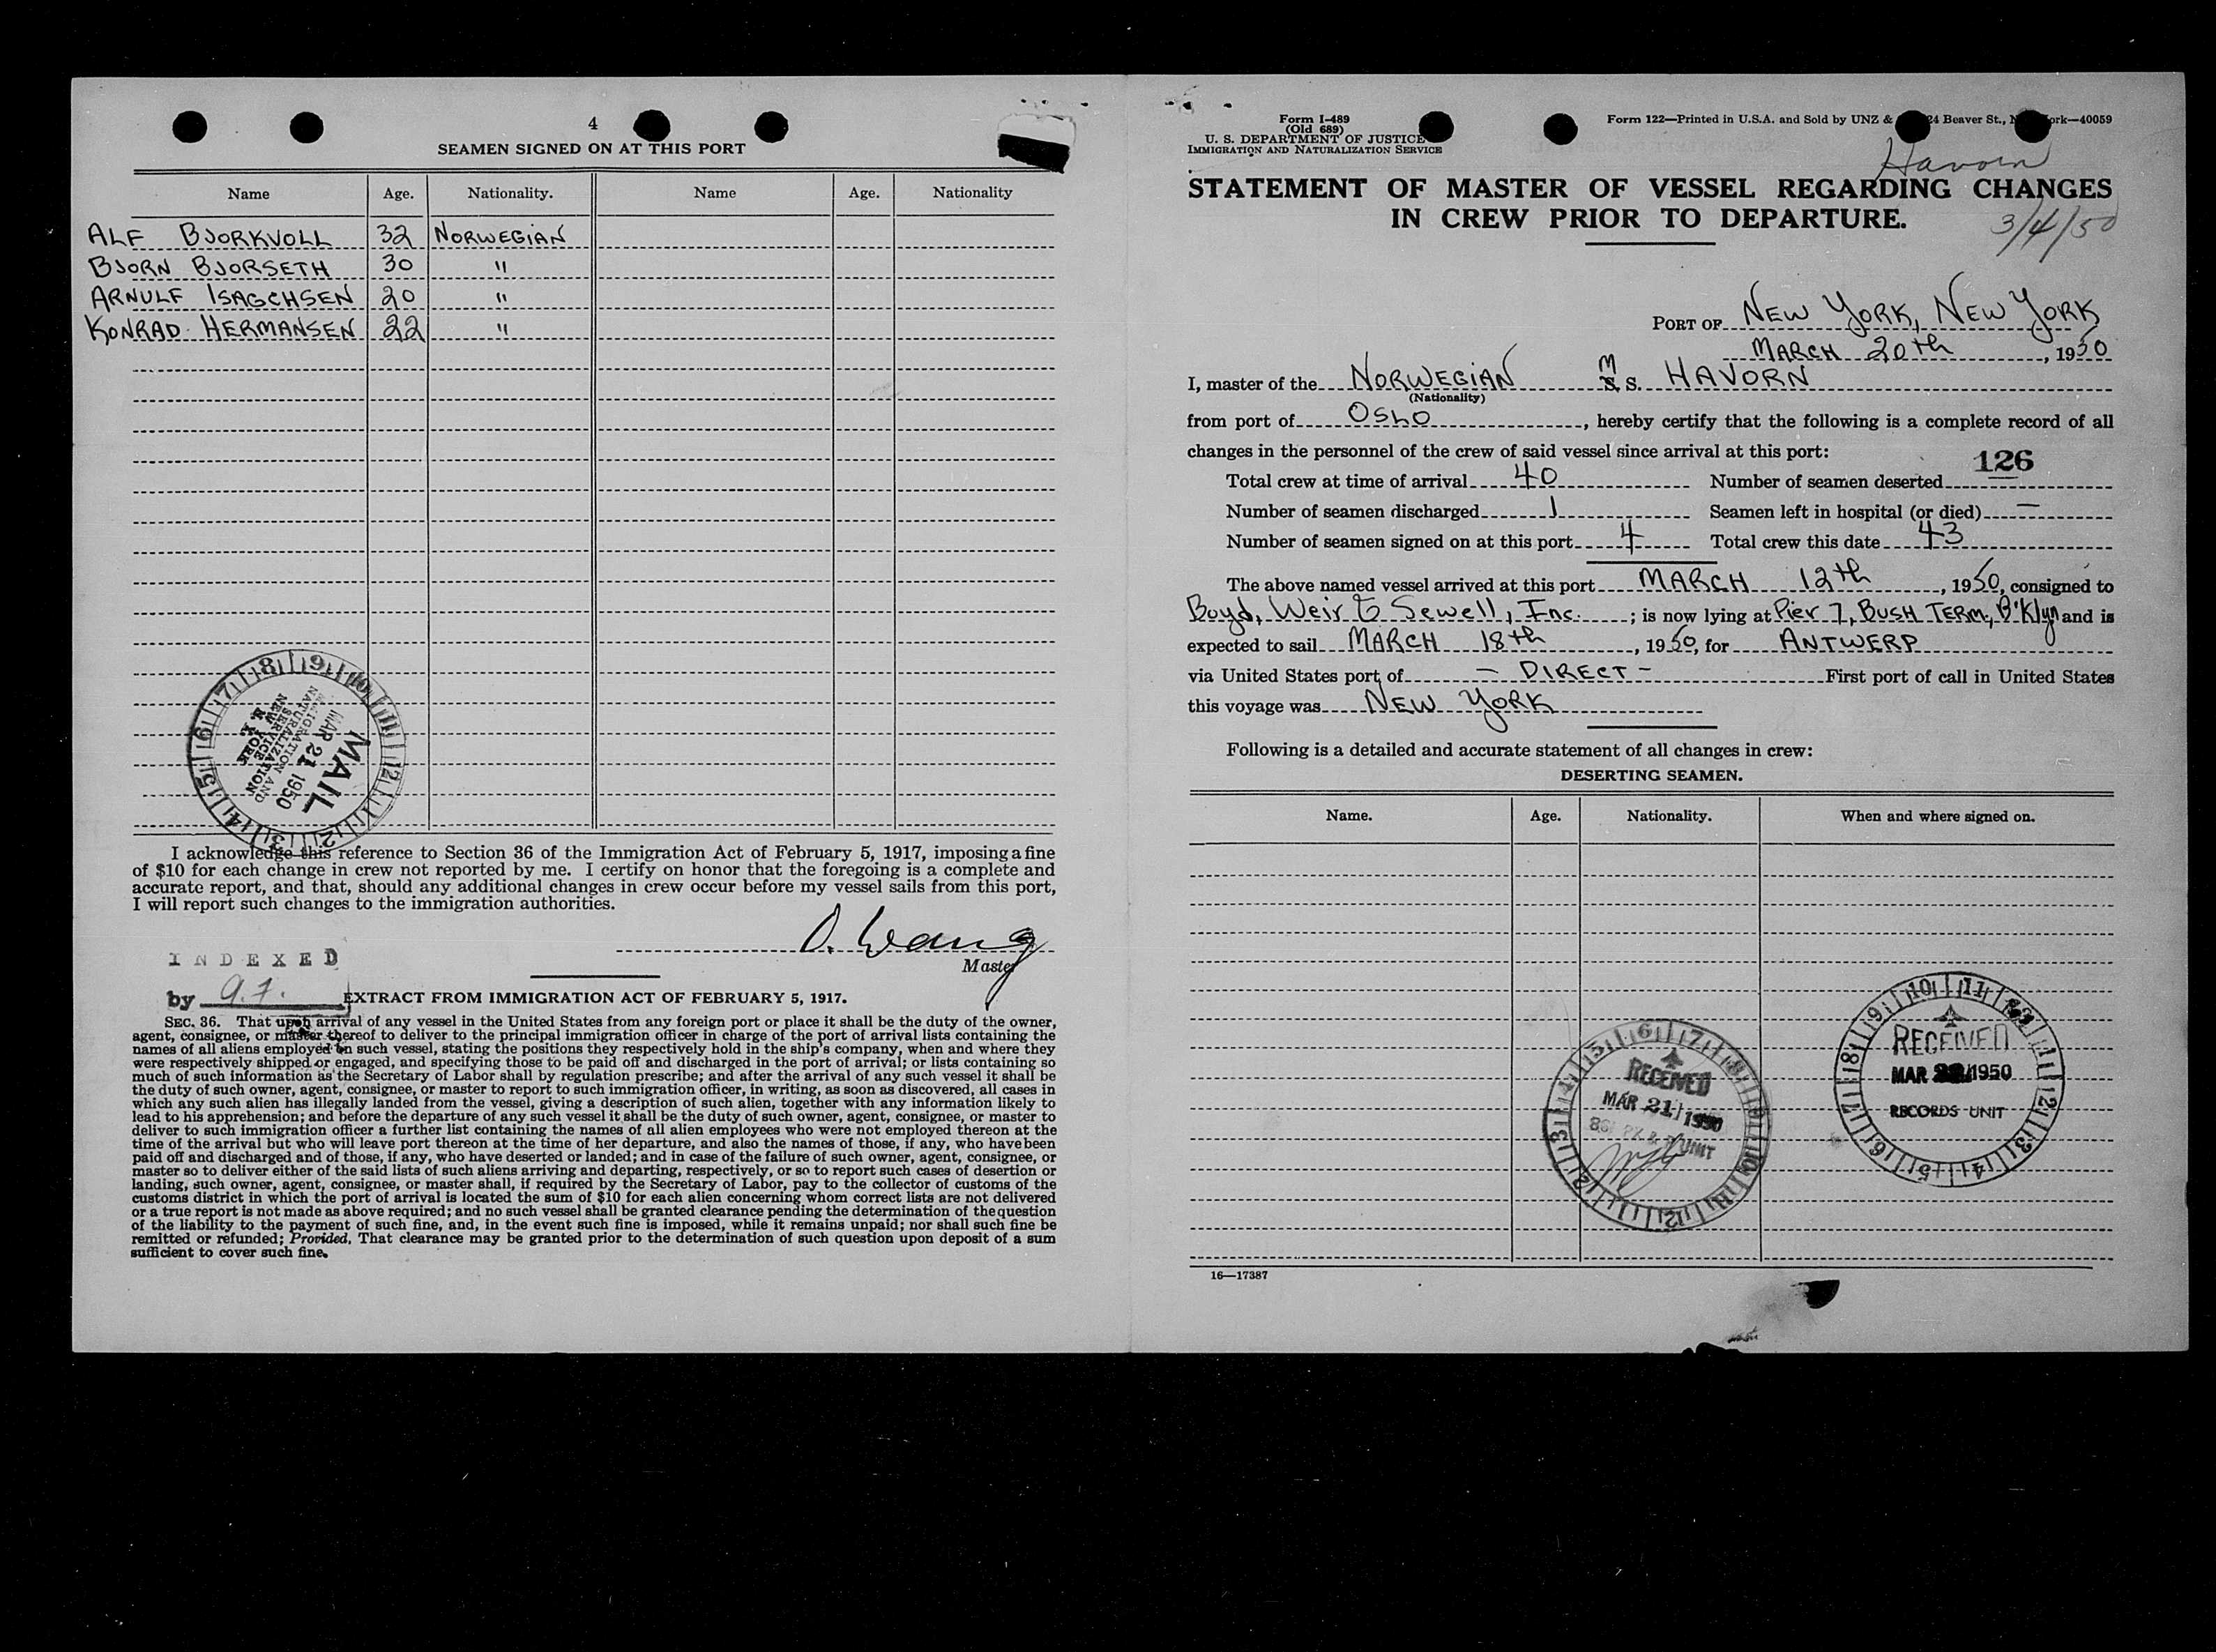 4
SEAMEN SIGNED ON AT THIS PORT
Name Age. Nationality. Name Age. Nationality
ALF BJORKVOLL 32 NORWEGIAN
BJORN BJORSETH 30 "
ARNULF ISAGCHSEN 20 "
KONRAD HERMANSEN 22 "
6 7 8 9 10 11 12 1 2 3 4 5
IMMIGRATION AND
NATURALIZATION
SERVICE
NEW YORK
N. Y.
MAR 21 1950
MAIL
I acknowledge this reference to Section 36 of the Immigration Act of February 5, 1917, imposing a fine
of $10 for each change in crew not reported by me. I certify on honor that the foregoing is a complete and
accurate report, and that, should any additional changes in crew occur before my vessel sails from this port,
I will report such changes to the immigration authorities.
O. Wang
Master
INDEXED
by
EXTRACT FROM IMMIGRATION ACT OF FEBRUARY 5, 1917.
SEC. 36. That upon arrival of any vessel in the United States from any foreign port or place it shall be the duty of the owner,
agent, consignee, or master thereof to deliver to the principal immigration officer in charge of the port of arrival lists containing the
names of all aliens employed on such vessel, stating the positions they respectively hold in the ship's company, when and where they
were respectively shipped or engaged, and specifying those to be paid off and discharged in the port of arrival; or lists containing so
much of such information as the Secretary of Labor shall by regulation prescribe; and after the arrival of any such vessel it shall be
the duty of such owner, agent, consignee, or master to report to such immigration officer, in writing, as soon as discovered, all cases in
which any such alien has illegally landed from the vessel, giving a description of such alien, together with any information likely to
lead to his apprehension; and before the departure of any such vessel it shall be the duty of such owner, agent, consignee, or master to
deliver to such immigration officer a further list containing the names of all alien employees who were not employed thereon at the
time of the arrival but who will leave port thereon at the time of her departure, and also the names of those, if any, who have been
paid off and discharged and of those, if any, who have deserted or landed; and in case of the failure of such owner, agent, consignee, or
master so to deliver either of the said lists of such aliens arriving and departing, respectively, or so to report such cases of desertion or
landing, such owner, agent, consignee, or master shall, if required by the Secretary of Labor, pay to the collector of customs of the
customs district in which the port of arrival is located the sum of $10 for each alien concerning whom correct lists are not delivered
or a true report is not made as above required; and no such vessel shall be granted clearance pending the determination of the question
of the liability to the payment of such fine, and, in the event such fine is imposed, while it remains unpaid; nor shall such fine be
remitted or refunded; Provided, That clearance may be granted prior to the determination of such question upon deposit of a sum
sufficient to cover such fine.
Form I-489
(Old 689)
U. S. DEPARTMENT OF JUSTICE
IMMIGRATION AND NATURALIZATION SERVICE
Form 122—Printed in U.S.A. and Sold by UNZ & 24 Beaver St., 40059
Havorn
STATEMENT OF MASTER OF VESSEL REGARDING CHANGES
IN CREW PRIOR TO DEPARTURE.
3/4/50
PORT OF NEW YORK, NEW YORK
MARCH 20th, 1950
I, master of the NORWEGIAN M S. HAVORN
(Nationality)
from port of OSLO, hereby certify that the following is a complete record of all
changes in the personnel of the crew of said vessel since arrival at this port:
126
Total crew at time of arrival 40 Number of seamen deserted —
Number of seamen discharged 1 Seamen left in hospital (or died) —
Number of seamen signed on at this port 4 Total crew this date 43
The above named vessel arrived at this port MARCH 12th, 1950, consigned to
Boyd, Weir & Sewell, Inc. ; is now lying at Pier 7, BUSH TERM., B'Klyn and is
expected to sail MARCH 18th, 1950, for ANTWERP
via United States port of - DIRECT - First port of call in United States
this voyage was NEW YORK
Following is a detailed and accurate statement of all changes in crew:
DESERTING SEAMEN.
Name. Age. Nationality. When and where signed on.
RECEIVED
MAR 21 1950
UNIT
RECEIVED
MAR 1950
RECORDS UNIT
16—17387